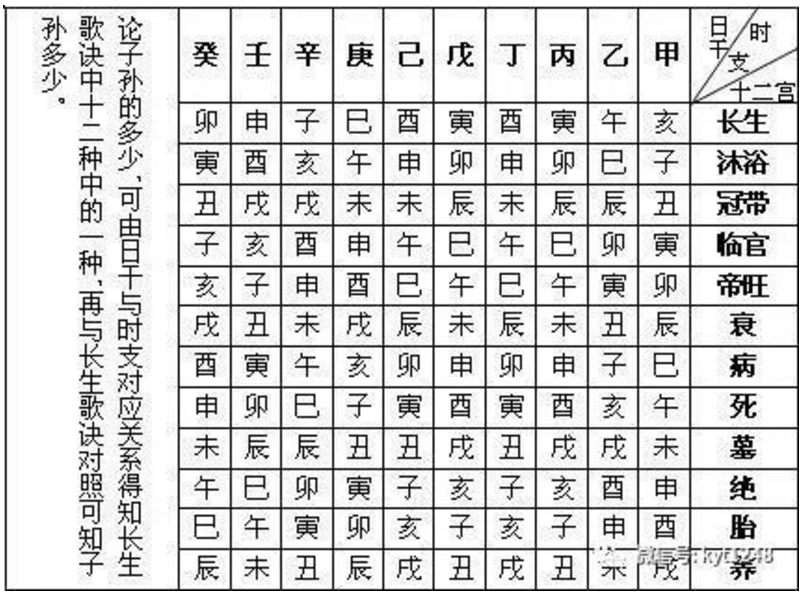 癸 壬 辛 庚 己 戊 丁 丙 乙 甲 日干 时支 十二宫
卯 申 子 巳 酉 寅 酉 寅 午 亥 长生
寅 酉 亥 午 申 卯 申 卯 巳 子 沐浴
丑 戌 戌 未 未 辰 未 辰 辰 丑 冠带
子 亥 酉 申 午 巳 午 巳 卯 寅 临官
亥 子 申 酉 巳 午 巳 午 寅 卯 帝旺
戌 丑 未 戌 辰 未 辰 未 丑 辰 衰
酉 寅 午 亥 卯 申 卯 申 子 巳 病
申 卯 巳 子 寅 酉 寅 酉 亥 午 死
未 辰 辰 丑 丑 戌 丑 戌 戌 未 墓
午 巳 卯 寅 子 亥 子 亥 酉 申 绝
巳 午 寅 卯 亥 子 亥 子 申 酉 胎
辰 未 丑 辰 戌 丑 戌 丑 未 戌 养
论子孙的多少,可由日干与时支对应关系得知长生
歌诀中十二种中的一种,再与长生歌诀对照可知子
孙多少。
微信号: kyt1248